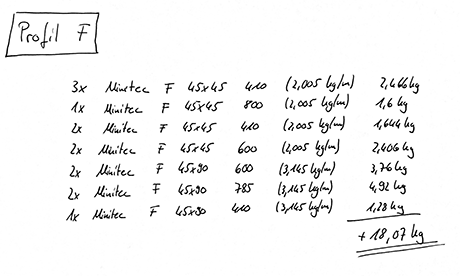 Profil F
3x Minitec F 45x45 410 (2,005 kg/m) 2,466kg
1x Minitec F 45x45 800 (2,005 kg/m) 1,6 kg
2x Minitec F 45x45 410 (2,005 kg/m) 1,644 kg
2x Minitec F 45x45 600 (2,005 kg/m) 2,406 kg
2x Minitec F 45x90 600 (3,145 kg/m) 3,76 kg
2x Minitec F 45x90 785 (3,145 kg/m) 4,92 kg
1x Minitec F 45x90 410 (3,145 kg/m) 1,28 kg
+ 18,07 kg